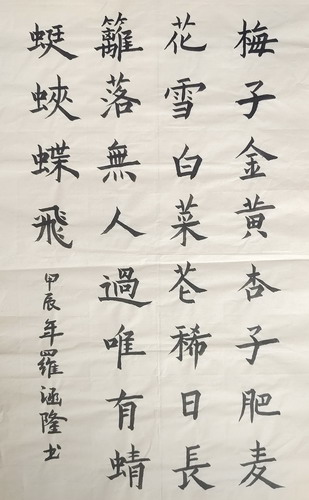 梅子金黄杏子肥麦
花雪白菜芲稀日長
籬落無人過唯有蜻
蜓蛺蝶飛
甲辰年羅涵隆书